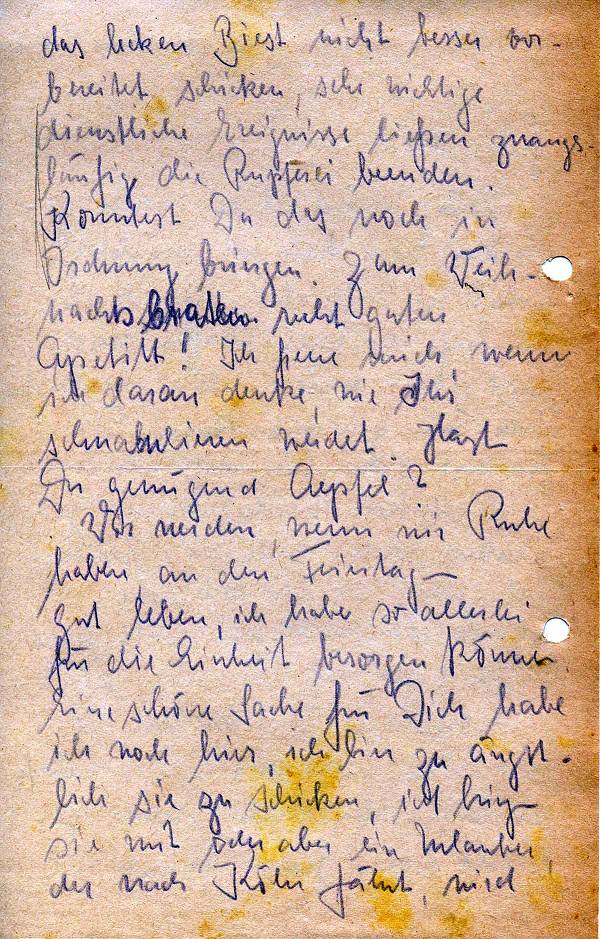 das lecken Biest nicht besser vor-
bereitet schicken, sehr wichtige
dienstliche Ereignisse ließen zwangs-
läufig die Rupferei beenden.
Konntest Du das noch in
Ordnung bringen. Zum Weih-
nachtsbraten recht guten
Apetitt! Ich freue mich, wenn
ich daran denke, wie Ihr
schnabulieren werdet. Hast
Du genügend Aepfel?
Wir werden, wenn wir Ruhe
haben, an den Feiertag
gut leben, ich habe so allerlei
für die Einheit besorgen können.
Eine schöne Sache für Dich habe
ich noch hier, ich bin zu ängst-
lich sie zu schicken, ich bring
sie mit oder aber ein Urlauber,
der nach Köln fährt, wird